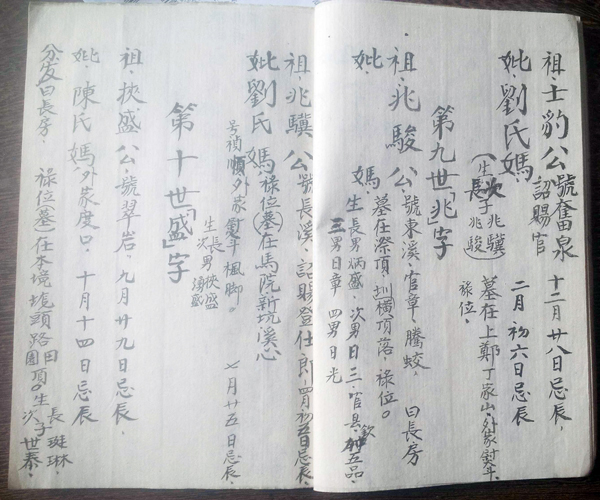 祖.士豹公號奮泉 十二月廿八日忌辰,
詔賜官
妣.劉氏媽 二月.初六日忌辰
(生長子兆駿 次子兆驥 墓在上鄭丁家山.外家
祿位.
第九世「兆」字
祖.兆駿公號東溪.官章.騰蛟. 曰長房
墓在漈頂 橫頂落.祿位。
妣. 媽 生長男炳盛.次男日三.官縣 五品.
三男日章 四男日光
祖.兆驥公號長溪.詔賜登仕郎.四月初 日忌辰
妣劉氏媽.祿位(墓在馬院新坑溪心
号禎順外家 楓脚。 七月廿五日忌辰.
生長男挾盛
次男湧盛
第十世「盛」字
祖.挾盛公.號翠岩.九月廿九日忌辰.
妣.陳氏媽外家度口.十月十四日忌辰
分友曰長房. 祿位(墓)在本境 頭路田園頂。生長.斑琳,
次子世泰.